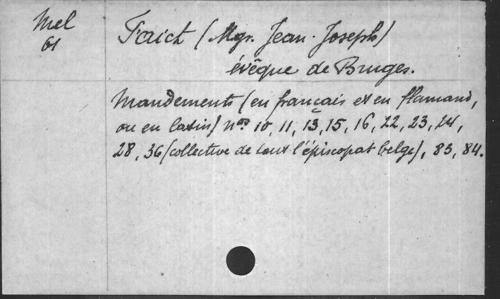 Mel
61
Faict (Mgr. Jean-Joseph)
évêque de Bruges.
Mandements (en français et en flamand,
ou en latin) nos 10, 11, 13, 15, 16, 22, 23, 24,
28, 36 (collective de tout l'épiscopat belge), 83, 84.